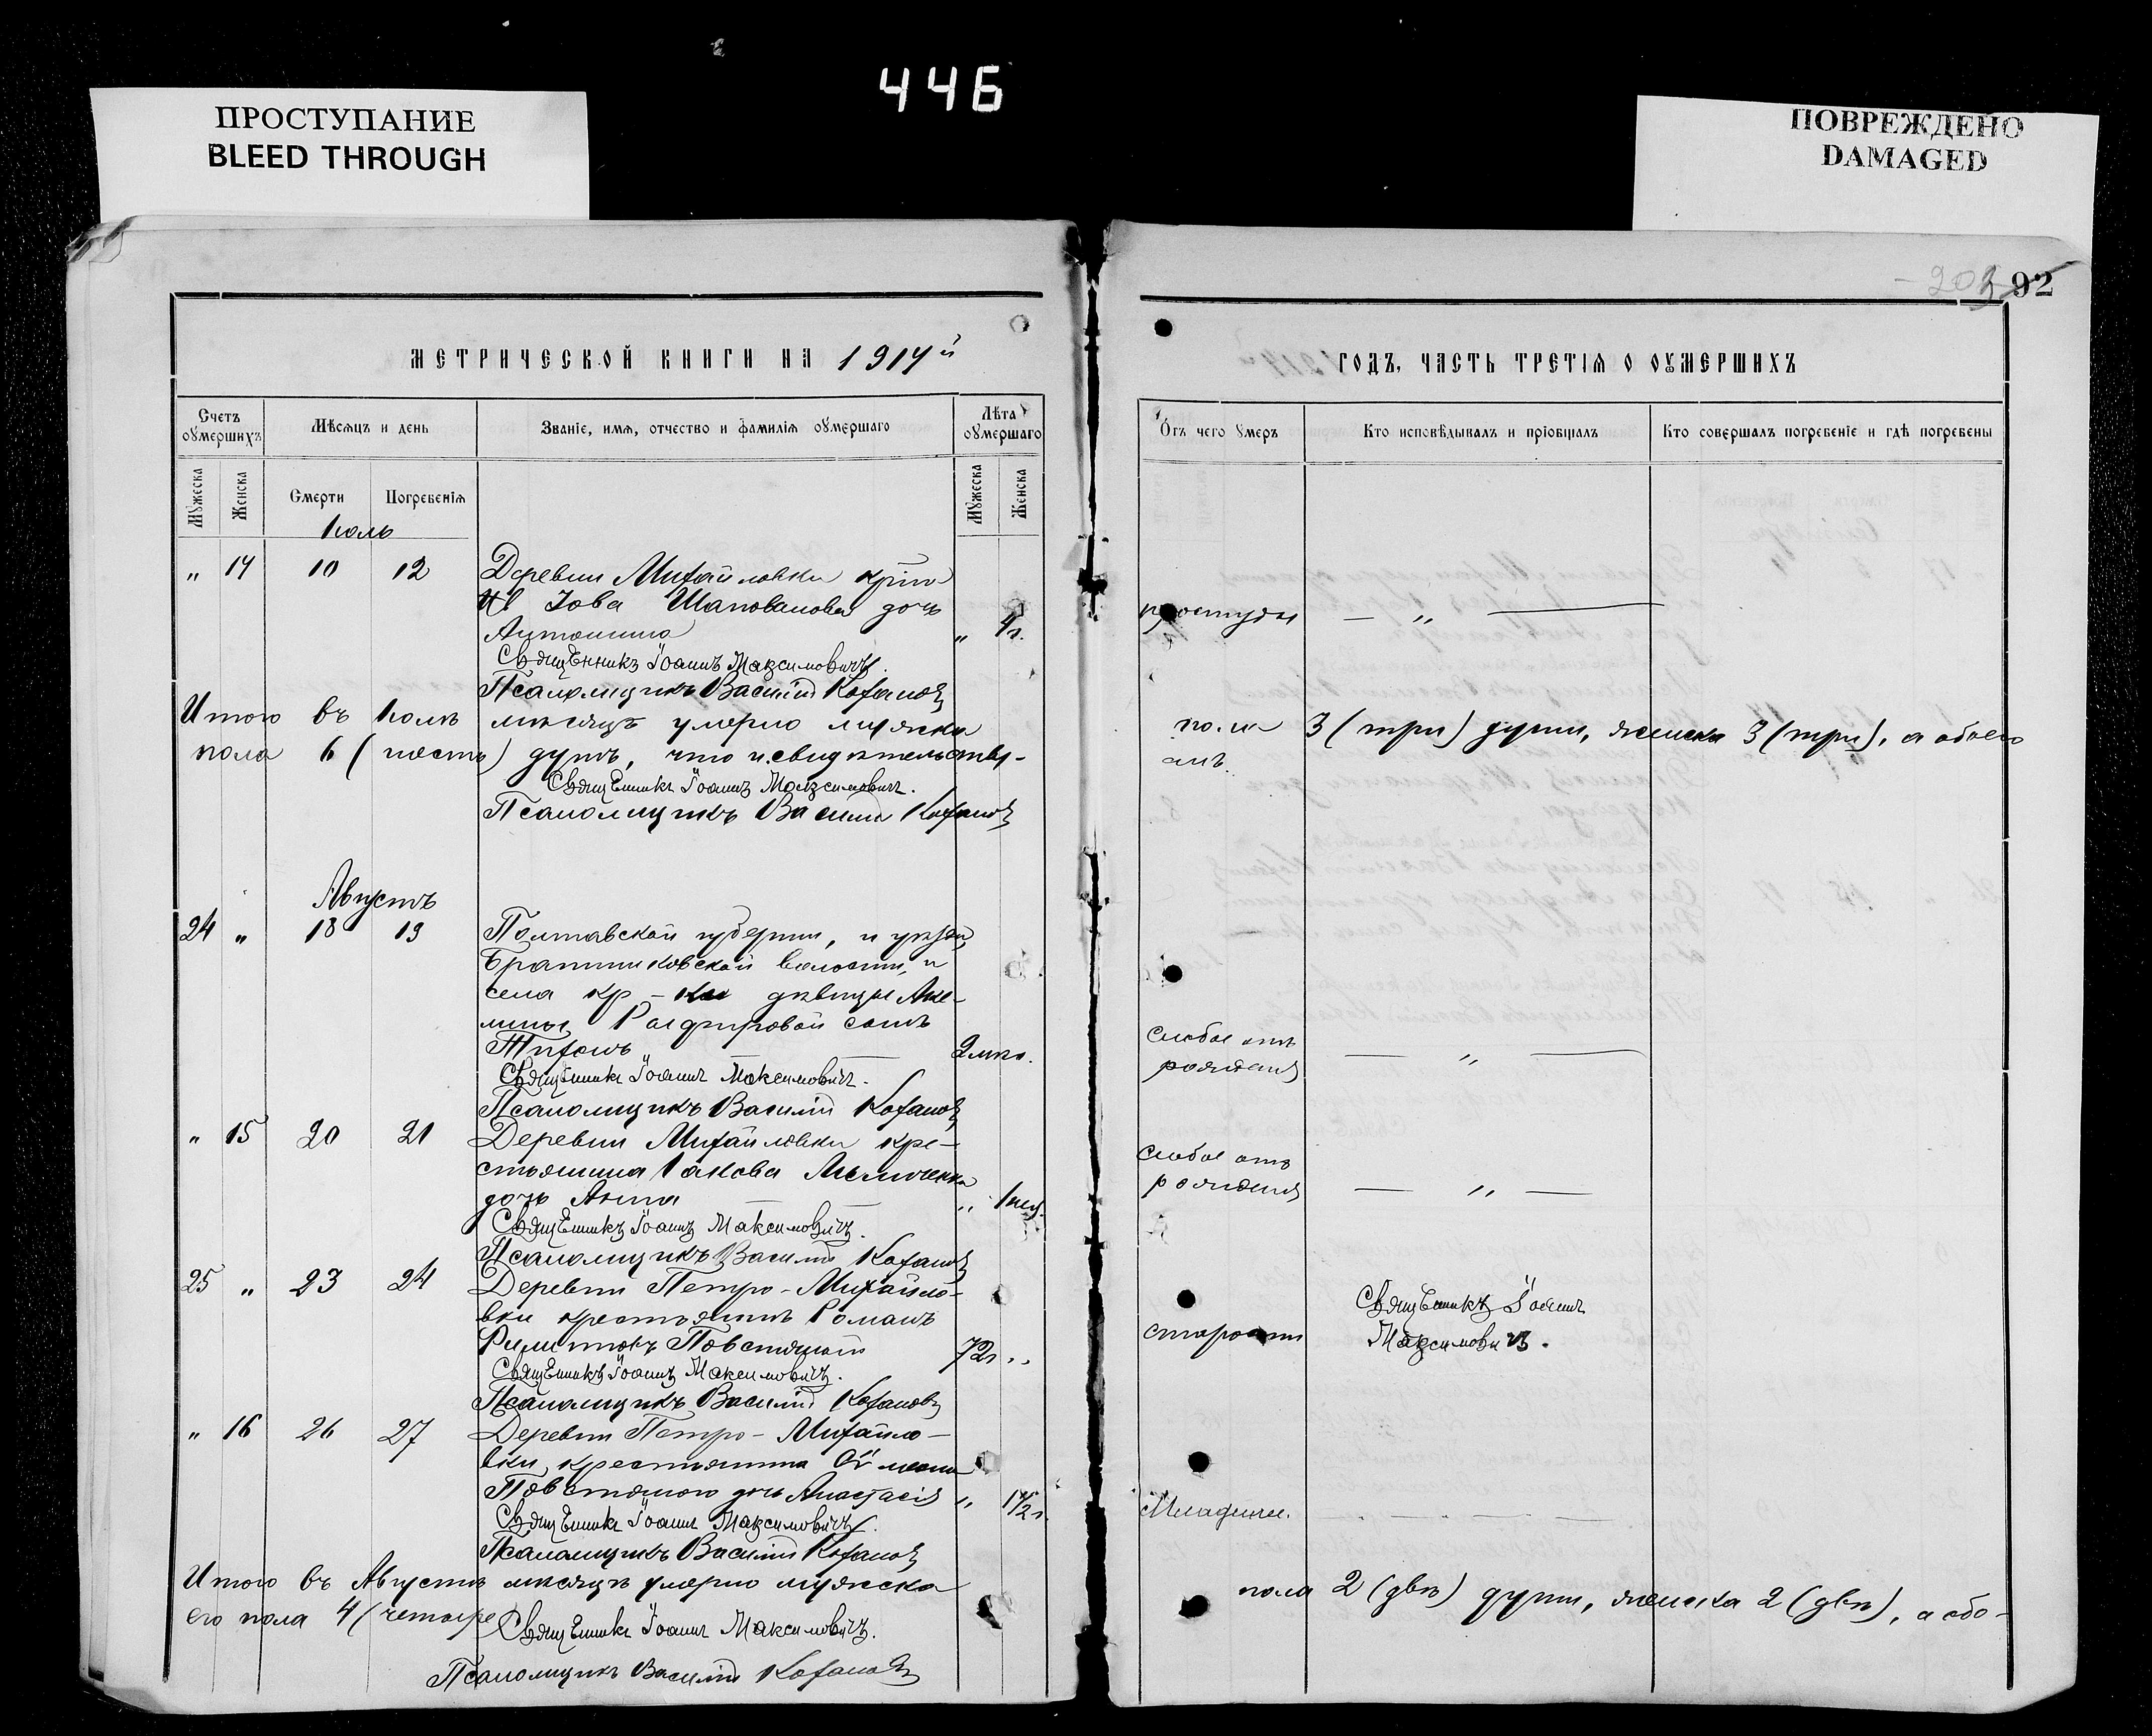 446
ПРОСТУПАНИЕ
BLEED THROUGH
ПОВРЕЖДЕНО
DAMAGED
203 92
МЕТРИЧЕСКОЙ КНИГИ НА 1914й
ГОДЪ, ЧАСТЬ ТРЕТІЯ О ОУМЕРШИХЪ
Счетъ оумершихъ
Мѣсяцъ и день
Званіе, имя, отчество и фамилія оумершаго
Лѣта оумершаго
Мужеска
Женска
Смерти
Погребенія
Мужеска
Женска
Отъ чего умеръ
Кто исповѣдывалъ и пріобщалъ
Кто совершалъ погребеніе и гдѣ погребены
Іюль
" 14 10 12 Деревни Михайловки
Іова Шаповалова дочь
Антонина " 4 г. простуды — " —
Священникъ Іоаннъ Максимовичъ.
Псаломщикъ Василій Кохановъ
Итого въ Іюлѣ мѣсяцѣ умерло мужска
пола 6 (шесть) душъ, что и свидѣтельству-
по.ла 3 (три) души, женска 3 (три), а обоего
емъ.
Священникъ Іоаннъ Максимовичъ.
Псаломщикъ Василій Кохановъ
Августъ
24 " 18 19 Полтавской губерніи, и уѣзда,
волости, и
села кр-ки дѣвицы Аке-
лины сынъ
Тихонъ 2 мѣс.
слабое отъ
рожденія — " —
Священникъ Іоаннъ Максимовичъ.
Псаломщикъ Василій Кохановъ
" 15 20 21 Деревни Михайловки кре-
стьянина Іакова
дочь Анна " 1 нед.
слабое отъ
рожденія — " —
Священникъ Іоаннъ Максимовичъ.
Псаломщикъ Василій Кохановъ
25 " 23 24 Деревни Петро-Михайло-
вки крестьянинъ Романъ
Повстяной 72 г. "
старости
Священникъ Іоаннъ
Максимовичъ.
Священникъ Іоаннъ Максимовичъ.
Псаломщикъ Василій Кохановъ
" 16 26 27 Деревни Петро-Михайло-
вки, крестьянина
Повстяного дочь Анастасія " 1½ г.
Младенч.
Священникъ Іоаннъ Максимовичъ.
Псаломщикъ Василій Кохановъ
Итого въ Августѣ мѣсяцѣ умерло мужеска
его пола 4 (четыре)
пола 2 (двѣ) души, женска 2 (двѣ), а обо-
Священникъ Іоаннъ Максимовичъ.
Псаломщикъ Василій Кохановъ